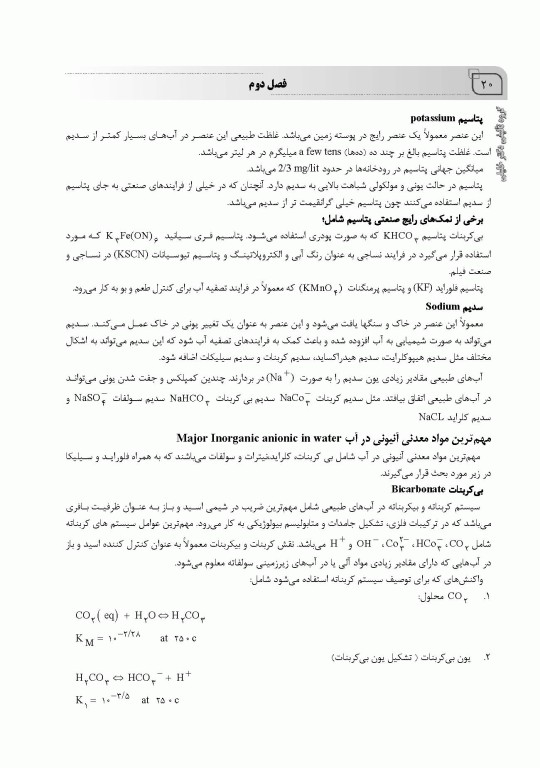 ۲۰
فصل دوم
پتاسیم potassium
این عنصر معمولاً یک عنصر رایج در پوسته زمین می‌باشد. غلظت طبیعی این عنصر در آب‌های بسیار کمتر از سدیم
است. غلظت پتاسیم بالغ بر چند ده (ده‌ها) a few tens میلیگرم در هر لیتر می‌باشد.
میانگین جهانی پتاسیم در رودخانه‌ها در حدود 2/3 mg/lit می‌باشد.
پتاسیم در حالت یونی و مولکولی شباهت بالایی به سدیم دارد. آنچنان که در خیلی از فرایندهای صنعتی به جای پتاسیم
از سدیم استفاده می‌کنند چون پتاسیم خیلی گرانقیمت تر از سدیم می‌باشد.
برخی از نمک‌های رایج صنعتی پتاسیم شامل؛
بی‌کربنات پتاسیم KHCO۳ که به صورت پودری استفاده می‌شود. پتاسیم فری سیانید K۳Fe(ON)۶ که مورد
استفاده قرار می‌گیرد در فرایند نساجی به عنوان رنگ آبی و الکتروپلاتینگ و پتاسیم تیوسیانات (KSCN) در نساجی و
صنعت فیلم.
پتاسیم فلوراید (KF) و پتاسیم پرمنگنات (KMnO۴) که معمولاً در فرایند تصفیه آب برای کنترل طعم و بو به کار می‌رود.
سدیم Sodium
معمولاً این عنصر در خاک و سنگها یافت می‌شود و این عنصر به عنوان یک تغییر یونی در خاک عمل می‌کند. سدیم
می‌تواند به صورت شیمیایی به آب افزوده شده و باعث کمک به فرایندهای تصفیه آب شود که این سدیم می‌تواند به اشکال
مختلف مثل سدیم هیپوکلرایت، سدیم هیدراکساید، سدیم کربنات و سدیم سیلیکات اضافه شود.
آب‌های طبیعی مقادیر زیادی یون سدیم را به صورت (Na⁺) در بردارند. چندین کمپلکس و جفت شدن یونی می‌تواند
در آب‌های طبیعی اتفاق بیافتد. مثل سدیم کربنات NaCo۳⁻ سدیم بی کربنات NaHCO۳ سدیم سولفات NaSO۴⁻ و
سدیم کلراید NaCL
مهم‌ترین مواد معدنی آنیونی در آب Major Inorganic anionic in water
مهم‌ترین مواد معدنی آنیونی در آب شامل بی کربنات، کلراید،نیترات و سولفات می‌باشند که به همراه فلوراید و سیلیکا
در زیر مورد بحث قرار می‌گیرند.
بی‌کربنات Bicarbonate
سیستم کربناته و بیکربناته در آب‌های طبیعی شامل مهم‌ترین ضریب در شیمی اسید و باز به عنوان ظرفیت بافری
می‌باشد که در ترکیبات فلزی، تشکیل جامدات و متابولیسم بیولوژیکی به کار می‌رود. مهم‌ترین عوامل سیستم های کربناته
شامل CO۲، HCo۳⁻، Co۳²⁻، OH⁻ و H⁺ می‌باشد. نقش کربنات و بیکربنات معمولاً به عنوان کنترل کننده اسید و باز
در آب‌هایی که دارای مقادیر زیادی مواد آلی یا در آب‌های زیرزمینی سولفاته معلوم می‌شود.
واکنش‌های که برای توصیف سیستم کربناته استفاده می‌شود شامل:
۱. CO۲ محلول:
CO۲( eq) + H۲O ⇔ H۲CO۳
K M = ۱۰^−۲/۲۸ at ۲۵ ∘ c
۲. یون بی‌کربنات ( تشکیل یون بی‌کربنات)
H۲CO۳ ⇔ HCO۳⁻ + H⁺
K۱ = ۱۰^−۳/۵ at ۲۵ ∘ c